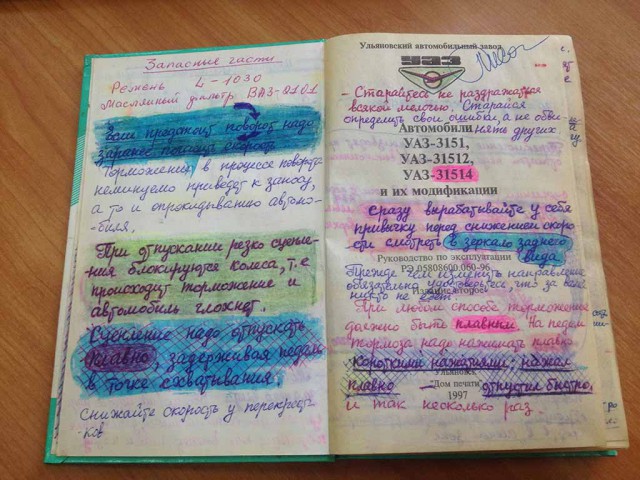 Запасные части
Ремень L-1030
Масляный фильтр ВАЗ-2101
Если предстоит поворот надо
заранее погасить скорость
Торможения в процессе поворота
неминуемо приведет к заносу,
а то и опрокидыванию автомо-
биля.
При отпускании резко сцепле-
ния блокируются колеса, т.е
происходит торможение и
автомобиль глохнет.
Сцепление надо отпускать
плавно, задерживая педаль
в точке схватывания.
Снижайте скорость у перекрест-
ков
Ульяновский автомобильный завод
УАЗ
- Старайтесь не раздражаться
всякой мелочью. Старайся
определить свои ошибки, а не обви-
нять других
Автомобили
УАЗ-3151,
УАЗ-31512,
УАЗ-31514
и их модификации
Сразу вырабатывайте у себя
привычку перед снижением скоро-
сти смотреть в зеркало заднего
вида
Руководство по эксплуатации
РЭ 05808600.060-96
Прежде чем изменить направление
обязательно удостоверьтесь, что за вами
никто не едет
Издание второе
При любом способе торможение
должно быть плавным. На педаль
тормоза надо нажимать плавно
короткими нажатиями: нажал
Ульяновск
плавно — отпустил быстро,
"Дом печати"
1997
и так несколько раз.